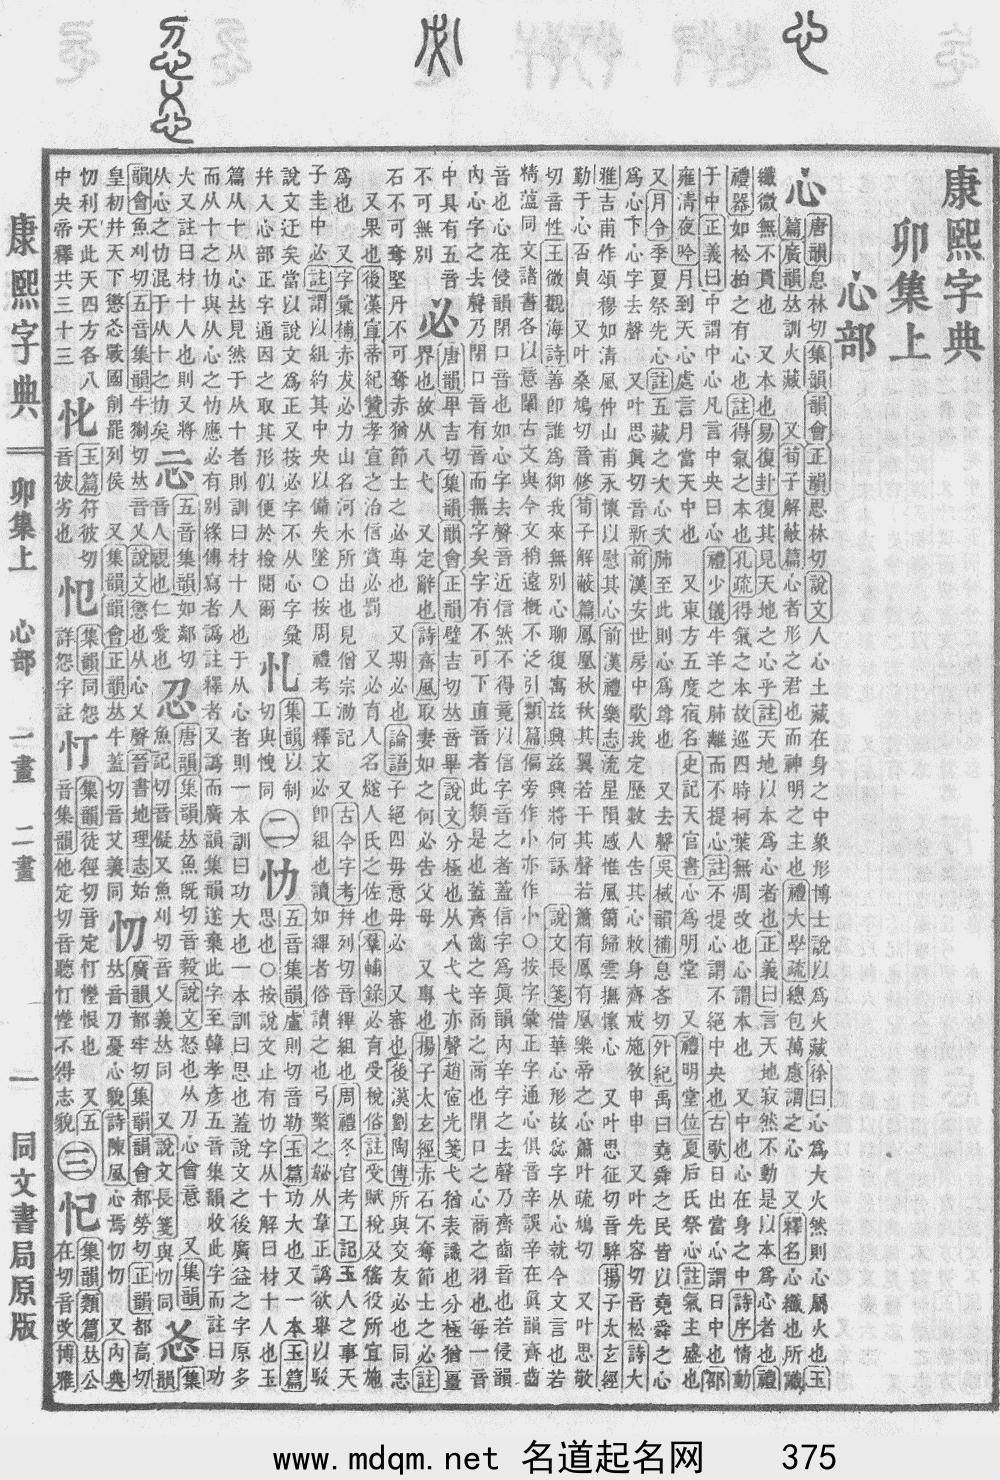 康熙字典
卯集上
心部
心
唐韻息林切集韻韻會正韻思林切說文人心土藏在身之中象形博士說以爲火藏徐曰心爲大火然則心屬火也玉
篇廣韻𠀤訓火藏　又荀子解蔽篇心者形之君也而神明之主也禮大學疏總包萬慮謂之心　又釋名心纖也所識
纖微無不貫也　又本也易復卦復其見天地之心乎註天地以本爲心者也正義曰言天地寂然不動是以本爲心者也禮
禮器如松柏之有心也註得氣之本也孔疏得氣之本故巡四時柯葉無凋改也心謂本也　又中也心在身之中詩序情動
于中正義曰中謂中心凡言中央曰心禮少儀牛羊之肺離而不提心註不提心謂不絕中央也古歌日出當心謂日中也邵
雍清夜吟月到天心處言月當天中也　又東方五度宿名史記天官書心爲明堂　又禮明堂位夏后氏祭心註氣主盛也
又月令季夏祭先心註五藏之次心次肺至此則心爲尊也　又去聲吳棫韻補息吝切外紀禹曰堯舜之民皆以堯舜之心
爲心下心字去聲　又叶思眞切音新前漢安世房中歌我定歷數人告其心敕身齊戒施敎申申　又叶先容切音松詩大
雅吉甫作頌穆如淸風仲山甫永懷以慰其心前漢禮樂志流星隕感惟風籋歸雲撫懷心　又叶思征切音騂揚子太玄經
勤于心否貞　又叶桑鳩切音修荀子解蔽篇鳳凰秋秋其翼若干其聲若簫有鳳有凰樂帝之心簫叶疏鳩切　又叶思敬
切音性王微觀海詩善卽誰爲御我來無別心聊復寓茲興茲興將何詠　說文長箋借華心形故惢字从心就今文言也若
精薀同文諸書各以意闡古文與今文稍遠槪不泛引類篇偏旁作小亦作㣺〇按字彙正字通心俱音辛誤辛在眞韻齊齒
音也心在侵韻閉口音也如心字去聲音近信然不得竟以信字音之者蓋信字爲眞韻內辛字之去聲乃齊齒音也若侵韻
內心字之去聲乃閉口音有音而無字矣字有不可下直音者此類是也蓋齊齒之辛商之商也閉口之心商之羽也每一音
中具有五音
必
唐韻𤰞吉切集韻韻會正韻壁吉切𠀤音畢說文分極也从八弋弋亦聲趙宧光箋弋猶表識也分極猶畺
不可無別
界也故从八弋　又定辭也詩齊風取妻如之何必告父母　又專也揚子太玄經赤石不奪節士之必註
石不可奪堅丹不可奪赤猶節士之必專也　又期必也論語子絕四毋意毋必　又審也後漢劉陶傳所與交友必也同志
　又果也後漢宣帝紀贊孝宣之治信賞必罰　又必有人名燧人氏之佐也羣輔錄必育受稅俗註受賦稅及徭役所宜施
爲也　又字彙補赤犮必力山名河水所出也見僧宗泐記　又古今字考幷列切音縪組也周禮冬官考工記玉人之事天
子圭中必註謂以組約其中央以備失墜〇按周禮考工釋文必卽組也讀如縪者俗讀之也弓檠之䪐从韋正譌欲舉以駁
說文迂矣當以說文爲正又按必字不从心字彙
幷入心部正字通因之取其形似便於檢閱爾
忆
集韻以制
切與愧同
二
忇
五音集韻盧則切音勒玉篇功大也又一本玉篇
思也〇按說文止有忇字从十解曰材十人也玉
篇从十从心𠀤見然于从十者則訓曰材十人也于从心者則一本訓曰功大也一本訓曰思也蓋說文之後廣益之字原多
而从十之忇與从心之忇應必有别緣傳寫者譌註釋者又譌而廣韻集韻遂棄此字至韓孝彥五音集韻收此字而註曰功
大又註曰材十人也則又將
从心之忇混于从十之忇矣
忈
五音集韻如鄰切
音人親也仁愛也
忍
唐韻集韻𠀤魚旣切音毅說文怒也从刀心會意　又集韻
魚記切音儗又魚刈切音乂義𠀤同　又說文長箋與忉同
忢
集
韻會魚刈切五音集韻牛㓨切𠀤音乂說文懲也从心乂聲晉書地理志始
皇初幷天下懲忢戰國削罷列侯　又集韻韻會正韻𠀤牛蓋切音艾義同
忉
廣韻都牢切集韻韻會都勞切正韻都高切
𠀤音刀憂心貌詩陳風心焉忉忉　又內典
忉利天此天四方各八
中央帝釋共三十三
㤓
玉篇符彼切
音被劣也
㤆
集韻同怨
詳怨字註
忊
集韻徒徑切音定忊憆恨也　又五
音集韻他定切音聽忊憆不得志貌
三
㤅
集韻類篇𠀤公
在切音改博雅
康熙字典　卯集上　心部　一畫　二畫　一　同文書局原版
www.mdqm.net 名道起名网　375